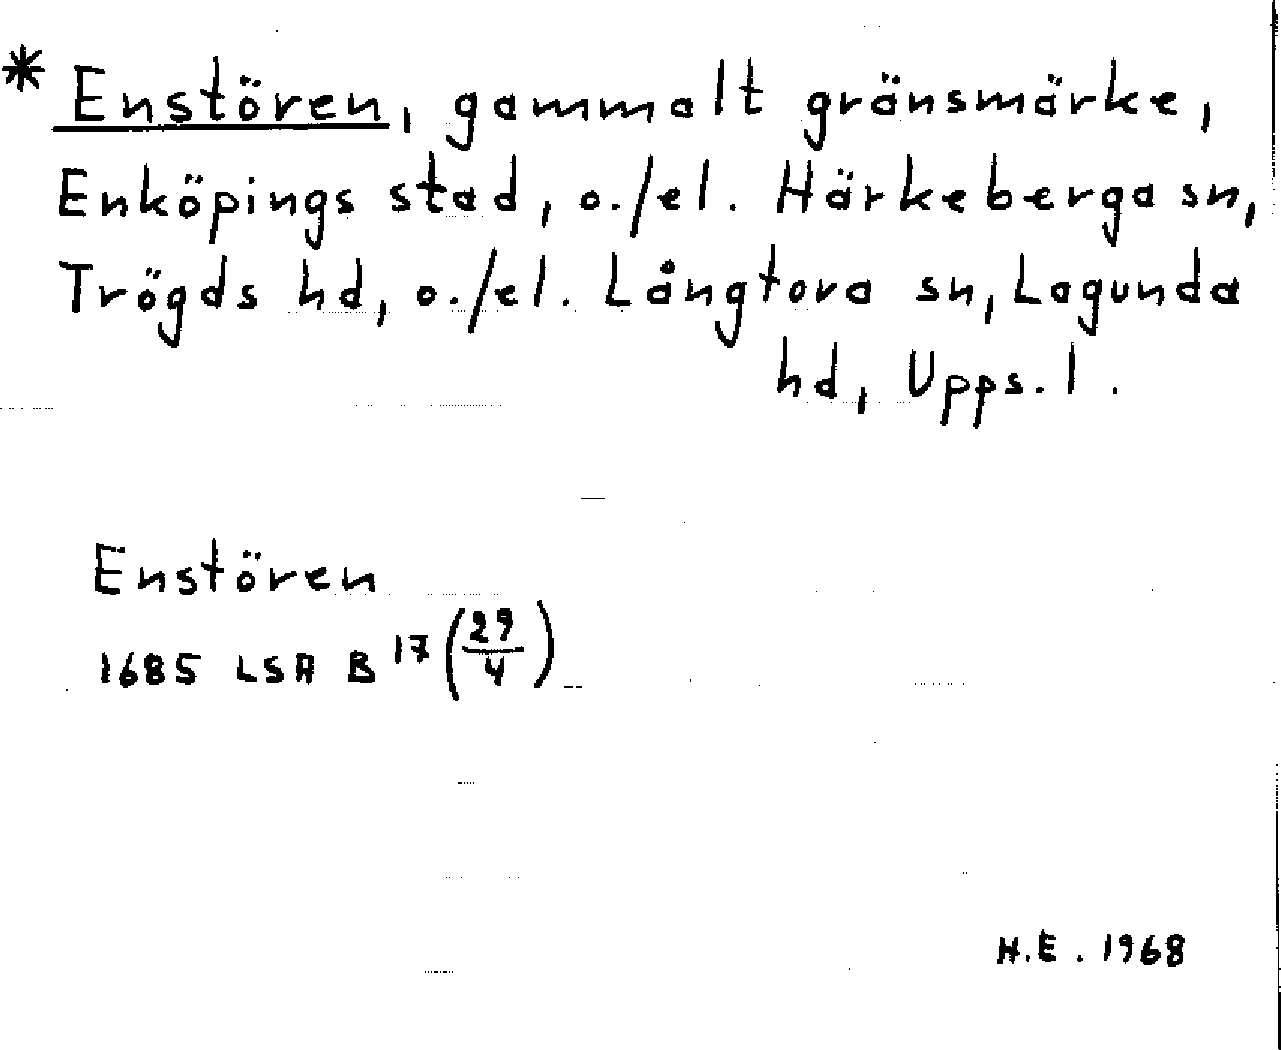 * Enstören, gammalt gränsmärke,
Enköpings stad, o./el. Härkeberga sn,
Trögds hd, o./el. Långtora sn, Lagunda
hd, Upps. l.
Enstören
1685 LSA B 17 (29/4)
H.E. 1968